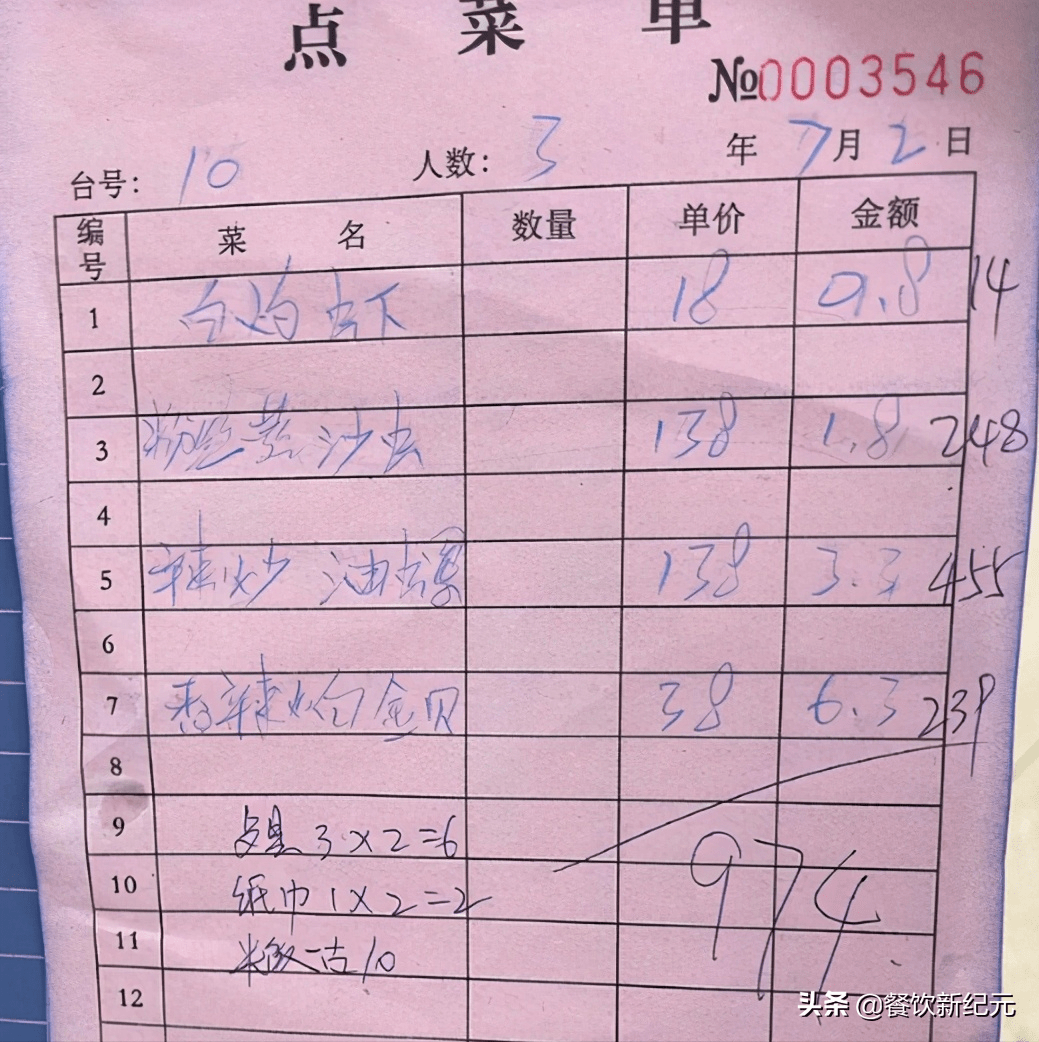 点 菜 单
№0003546
台号: 10 人数: 3 年 7月 2日
编号 菜 名 数量 单价 金额
1 白灼虫下 18 0.8 14
2
3 粉丝蒸沙虫 138 1.8 248
4
5 辣炒油虫螺 138 3.3 455
6
7 香辣炒白金贝 38 6.3 239
8
9 3×2=6
10 纸巾 1×2=2
11 10
12
974
头条 @餐饮新纪元